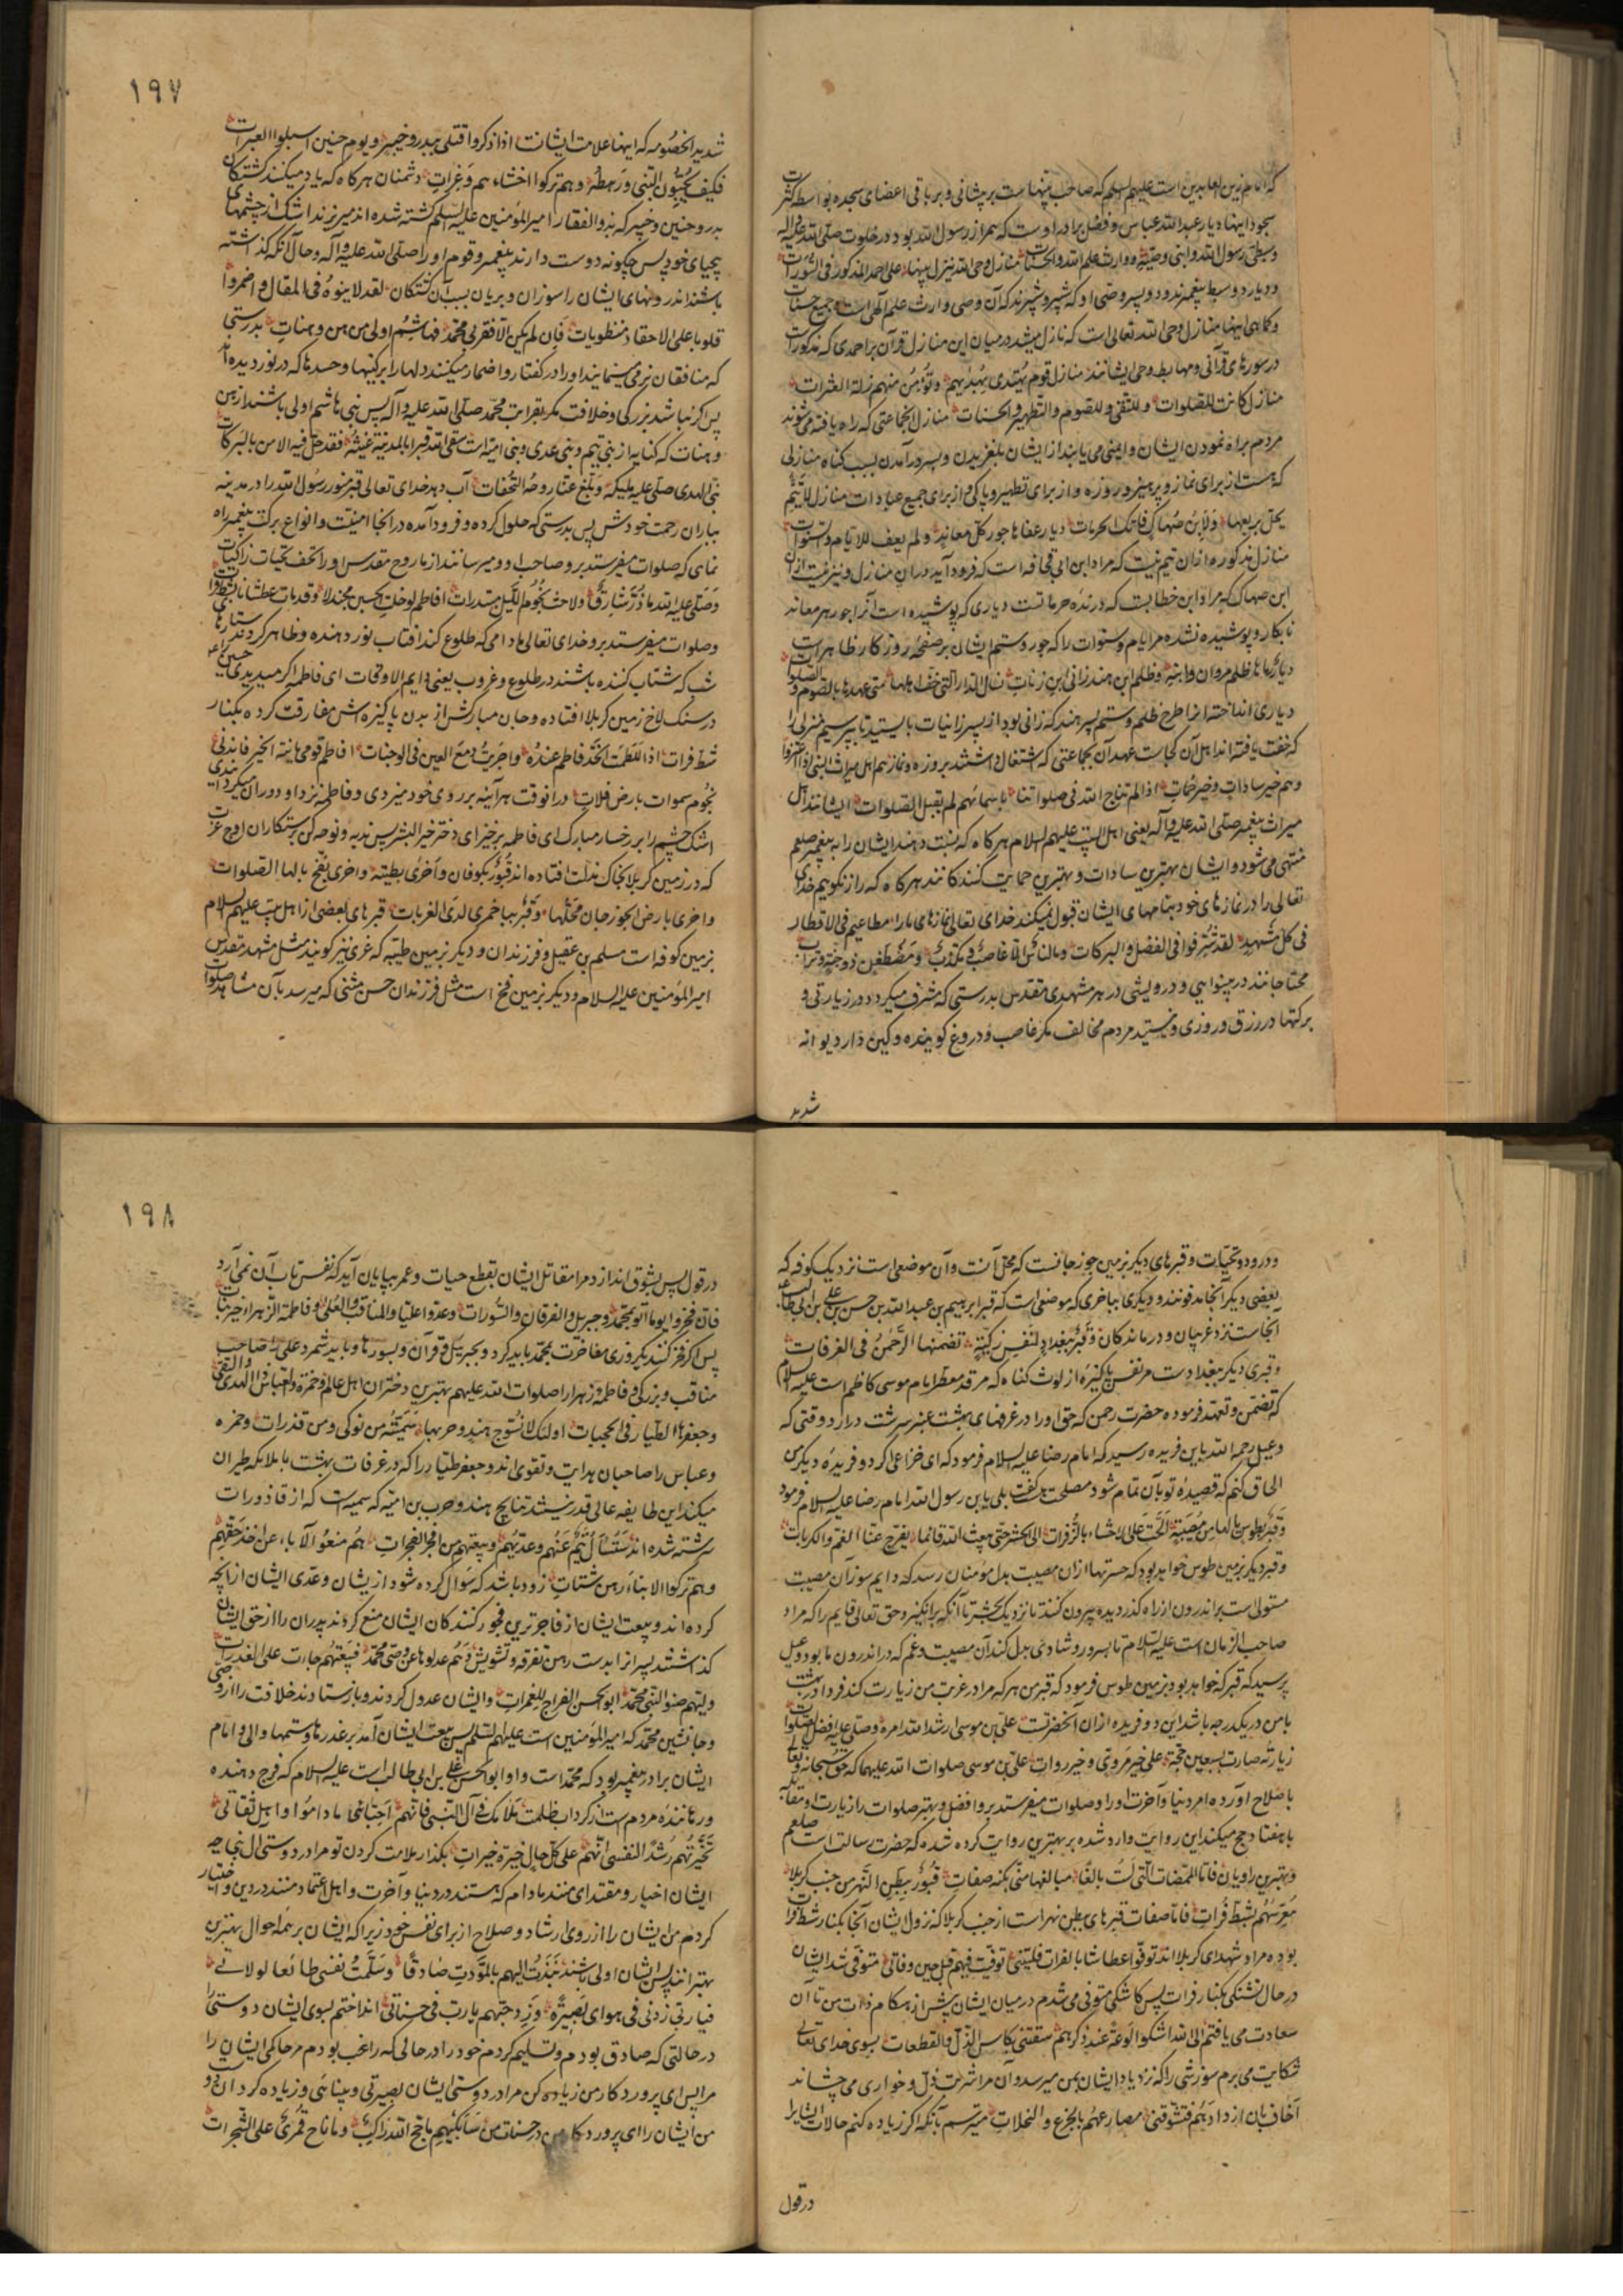 که امام زین العابدین است علیهم السلم که صاحب پنهاست بر پیشانی و بر باقی اعضای سجده بواسطه کثرت
سجود اینها دیار عبدالله عباس و فضل برادر اوست که همراز رسول الله بود در خلوت صلی الله علیه و اله
وسبطی رسول الله وابنی وصیه و وارث علم الله والحسنات منازل وحی الله ینزل بینها علی احمد المذکور فی السورات
و دیار دو سبط پیغمبرند و دو پسر وصی او که شبر و شبیرند که آن وصی وارث علم الهی است و جمیع حسنات
و کماهی اینها منازل وحی الله تعالی است که نازل میشد در میان این منازل قرآن بر احمدی که مذکور است
در سورهای قرآنی و مهابط وحی ایشانند منازل قوم یهتدی بهدیهم و تؤمن منهم زلة العثرات
منازل کانت للصلوات وللتقی وللصوم والتطهیر والحسنات منازل انجماعتی که راه یافته می شوند
مردم براه نمودن ایشان و ایمنی می یابند از ایشان بلغزیدن و بسر در آمدن بسبب گناه منازلی
که هست از برای نماز و پرهیز و روزه و از برای تطهیر و پاکی و از برای جمیع عبادات منازل لا تیم
یحل بربعها ولا ابن صهاک فاتک الحرمات دیار عفاها جور کل معاند ولم یعف للایام والسنوات
منازل مذکوره از ان تیم نیست که مراد ابن ابی قحافه است که فرود آید در ان منازل و نیز نیست از ان
ابن صهاک که مراد ابن خطابست که درنده حرماتست دیاری که پوشیده است آنرا جور هر معاند
نابکار و پوشیده نشده مر ایام و سنوات را که جور و ستم ایشان بر صفحه روزگار ظاهر است
دیاری انداخته انرا طرح ظلم و ستم پسر هند که زانی بود از پسر زانیات بایستید تا بپرسیم منزلی را
که خفت یافته اند اهل آن کجاست عهد آن بجماعتی که اشتغال داشتند بروزه و نماز هم اهل میراث النبی اذا اعتزوا
وهم خیر سادات وخیر حمات اذا لم نناج الله فی صلواتنا باسمائهم لم یقبل الصلوات ایشانند اهل
میراث پیغمبر صلی الله علیه و آله یعنی اهل البیت علیهم السلام هرکاه که نسبت دهند ایشان را به پیغمبر صلعم
منتهی می شود و ایشان بهترین سادات و بهترین حمایت کنندکانند هرکاه که راز نگوییم خدای
تعالی را در نمازهای خود بنامهای ایشان قبول نمیکند خدای تعالی نمازهای ما را مطاعیم فی الاقطار
فی کل مشهد لقد شرفوا فی الفضل والبرکات وما الناس الا غاصب و مکذب ومضطغن ذو حنة وترات
محتاجانند در بینوایی و درویشی در هر مشهدی مقدس بدرستی که مشرف میکردد در زیارتی و
برکتها در رزق و روزی و نیستند مردم مخالف مکر غاصب و دروغ کوینده و کین دار دیوانه
شدید
۱۹۷
شدید الخصومه که اینها علامت ایشانست اذا ذکروا قتلی ببدر و خیبر ویوم حنین اسبلوا العبرات
فکیف یحبون النبی ورهطه وهم ترکوا احشاءهم وغرات دشمنان هرکاه که یاد میکنند کشتکان
بدر و حنین و خیبر که بذوالفقار امیرالمؤمنین علیه السلم کشته شده اند میریزند اشک از چشمهای
بیحیای خود پس چکونه دوست دارند پیغمبر و قوم او را صلی الله علیه و آله و حال آنکه کذاشته
باشند اندرونهای ایشان را سوزان و بریان بسبب آن کشتکان لقد لاینوه فی المقال واضمروا
قلوبا علی الاحقاد منطویات فان لم یکن الا بقربی محمد فهاشم اولی من هن وهنات بدرستی
که منافقان نرمی مینمایند او را در کفتار و اضمار میکنند دلها را بر کینها و حسدها که در نوردیده اند
پس اکر نباشد بزرکی و خلافت مکر بقرابت محمد صلی الله علیه و آله پس بنی هاشم اولی باشند از هن
وهنات که کنایه از بنی تیم و بنی عدی و بنی امیه است سقی الله قبرا بالمدینة غیثه فقد حل فیه الامن بالبرکات
نبی الهدی صلی علیه ملیکه وبلغ عنا روحه التحفات آب دهد خدای تعالی قبر منور رسول الله را در مدینه
بباران رحمت خودش پس بدرستی که حلول کرده و فرود آمده در انجا امنیت و انواع برکت پیغمبر راه
نمای که صلوات میفرستد بر و صاحب او و میرسانند از ما روح مقدس او را تحف تحیات زاکیات
وصلی علیه الله ما ذر شارق ولاحت نجوم اللیل مبتدرات افاطم لو خلت الحسین مجدلا وقد مات عطشانا بشط فرات
و صلوات میفرستد بر و خدای تعالی مادامی که طلوع کند افتاب نور دهنده و ظاهر کردند ستارهای
شب که شتاب کننده باشند در طلوع و غروب یعنی دایم الاوقات ای فاطمه اکر میدیدی حسین را
در سنک لاخ زمین کربلا افتاده و جان مبارکش از بدن پاکیزه اش مفارقت کرده بکنار
شط فرات اذا للطمت الخد فاطم عنده واجریت دمع العین فی الوجنات افاطم قومی یا ابنة الخیر فاندبی
نجوم سموات بارض فلات در انوقت هر آینه بر روی خود میزدی و فاطمه نزد او و روان میکردی
اشک چشم را بر رخسار مبارک ای فاطمه برخیز ای دختر خیر البشر پس ندبه و نوحه کن بر ستکاران اوج عزت
که در زمین کربلا بخاک مذلت افتاده اند قبور بکوفان واخری بطیبة واخری بفخ نالها الصلوات
واخری بارض الجوزجان محلها وقبر بباخمری لدی الغربات قبرهای بعضی از اهل بیت علیهم السلام
بزمین کوفه است مسلم بن عقیل و فرزندان و دیکر بزمین طیبه که غری نیز کویند مثل مشهد مقدس
امیرالمؤمنین علیه السلام و دیکر بزمین فخ است مثل فرزندان حسن مثنی که میرسد بآن مشاهد صلوات
و درود و تحیات و قبرهای دیکر بزمین جوزجانست که محل آنست و آن موضعی است نزدیک بکوفه که
بعضی دیکر آنجا مدفونند و دیکری بباخمری که موضعی است که قبر ابرهیم بن عبدالله بن حسن بن علی بن ابی طالب
آنجاست نزد غریبان و درماندکان وقبر ببغداد لنفس زکیة تضمنها الرحمن فی الغرفات
و قبری دیکر ببغدادست مر نفس پاکیزه از لوث کناه که مرقد معطر امام موسی کاظم است علیه السلام
که تضمن و تعهد فرموده حضرت رحمن که حق او را در غرفهای بهشت عنبر سرشت درارد وقتی که
دعبل رحمه الله باین فریده رسید که امام رضا علیه السلام فرمود که ای خزاعی اکر دو فریده دیکر من
الحاق کنم که قصیده تو بآن تمام شود مصلحت هست کفت بلی یا بن رسول الله امام رضا علیه السلام فرمود
وقبر بطوس یا لها من مصیبة الحت علی الاحشاء بالزفرات الی الحشر حتی یبعث الله قائما یفرج عنا الغم والکربات
و قبر دیکر بزمین طوس خواهد بود که حسرتها از ان مصیبت بدل مؤمنان رسد که دایم سوز آن مصیبت
مستولی است بر اندرون از راه کذر دیده بیرون کنند تا نزدیک محشر تا آنکه برانکیزد حق تعالی قایم را که مراد
صاحب الزمان است علیه السلام تا بسرور و شادی بدل کند آن مصیبت و غم که در اندرون ما بود دعبل
پرسید که قبر که خواهد بود بزمین طوس فرمود که قبر من هر که مرا در غربت من زیارت کند فردا در بهشت
با من در یکدرجه باشد این دو فریده از ان آنحضرتست علی بن موسی ارشد الله امره وصلی علیه افضل الصلوات
زیارته صارت بسبعین حجة علی خیر مروی وخیر روات علی بن موسی صلوات الله علیهما که حق سبحانه و تعالی
باصلاح آورده امر دنیا و آخرت او را و صلوات میفرستد بر و افضل و بهتر صلوات را زیارت او مقابله
با هفتاد حج میکند این روایت وارد شده بر بهترین روایت کرده شده که حضرت رسالت است صلعم
و بهترین راویان فاما الممضات التی لست بالغا مبالغها منی بکنه صفات قبور ببطن النهر من جنب کربلا
معرسهم بشط فرات فاما صفات قبرهای بطن نهر است از جنب کربلا که نزول ایشان آنجا بکنار شط فرات
بوده مراد شهدای کربلا اند توفوا عطاشا بالفرات فلیتنی توفیت فیهم قبل حین وفاتی متوفی شد ایشان
در حال تشنکی بکنار فرات پس کاشکی متوفی می شدم در میان ایشان پیش از هنکام وفات من تا آن
سعادت می یافتم الی الله اشکوا لوعة عند ذکرهم سقتنی بکاس الذل والفظعات بسوی خدای تعالی
شکایت می برم سوزشی را که نزد یاد ایشان بمن میرسد و آن مرا شربت ذل و خواری می چشاند
اخاف بان ازدادهم فتشوقنی مصارعهم بالجزع والنخلات میترسم بآنکه اکر زیاده کنم حالات ایشانرا
در قول
۱۹۸
در قول پس بشوق اندازد مرا مقاتل ایشان بقطع حیات و عمر بپایان آید که نفس تاب آن نمی آرد
فان فخروا یوما اتوا بمحمد وجبریل والفرقان والسورات وعدوا علیا والمناقب والعلی وفاطمة الزهراء خیر بنات
پس اکر فخر کنند یکروزی مفاخرت بمحمد باید کرد و بجبریل و قرآن و بسورها و باید شمرد علی را صاحب
مناقب و بزرکی و فاطمه زهرا را صلوات الله علیهم بهترین دختران اهل عالم وحمزة والعباس ذا الهدی والتقی
وجعفرها الطیار فی الحجبات اولئک لا منتوج هند وحربها سمیة من نوکی ومن قذرات و حمزه
و عباس را صاحبان هدایت و تقوی اند و جعفر طیار را که در غرفات بهشت با ملایکه طیران
میکند این طایفه عالی قدر نیستند نتایج هند و حرب بن امیه که سمیه است که از قاذورات
سرشته شده اند ستسأل تیم عنهم وعدیهم وبیعتهم من افجر الفجرات هم منعوا الآباء عن اخذ حقهم
وهم ترکوا الابناء رهن شتات زود باشد که سؤال کرده شود از یشان و عدی ایشان از آنچه
کرده اند و بیعت ایشان از فاجرترین فجور کنندکان ایشان منع کردند پدران را از حق ایشان
کذاشتند پسرانرا بدست رهن تفرقه و تشویش وهم عدلوها عن وصی محمد فبیعتهم جاءت علی الغدرات
ولیهم صنو النبی محمد ابو الحسن الفراج للغمرات و ایشان عدول کردند و بازستادند خلافت را از وصی
و جانشین محمد که امیرالمؤمنین است علیهم السلم پس بیعت ایشان آمد بر غدرها و ستمها والی و امام
ایشان برادر پیغمبر بود که محمد است و او ابوالحسن علی بن ابی طالب است علیه السلام که فرج دهنده
و رهاننده مردم است از کرداب ظلمت ملامک فی آل النبی فانهم احبائی ما داموا واهل ثقاتی
تخیرتهم رشدا لنفسی انهم علی کل حال خیرة خیرات بکذار ملامت کردن تو مرا در دوستی آل نبی چه
ایشان اخیار و مقتدای منند مادام که هستند در دنیا و آخرت و اهل اعتماد منند در دین و اختیار
کردم من ایشان را از روی ارشاد و صلاح از برای نفس خود زیرا که ایشان بر همه احوال بهترین
بهترانند پس ایشان اولی باشند نبذت الیهم بالمودت صادقا وسلمت نفسی طائعا لولاتی
فیا رب زدنی فی هوای بصیرة وزد حبهم یا رب فی حسناتی انداختم بسوی ایشان دوستی را
در حالتی که صادق بودم و تسلیم کردم خود را در حالی که راغب بودم مر حاکمی ایشان را
مرا پس ای پروردکار من زیاده کن مرا در دوستی ایشان بصیرتی و بینائی و زیاده کردان
من ایشان را ای پروردکار من در حسنات من سابکیهم ما حج لله راکب وما ناح قمری علی الشجرات